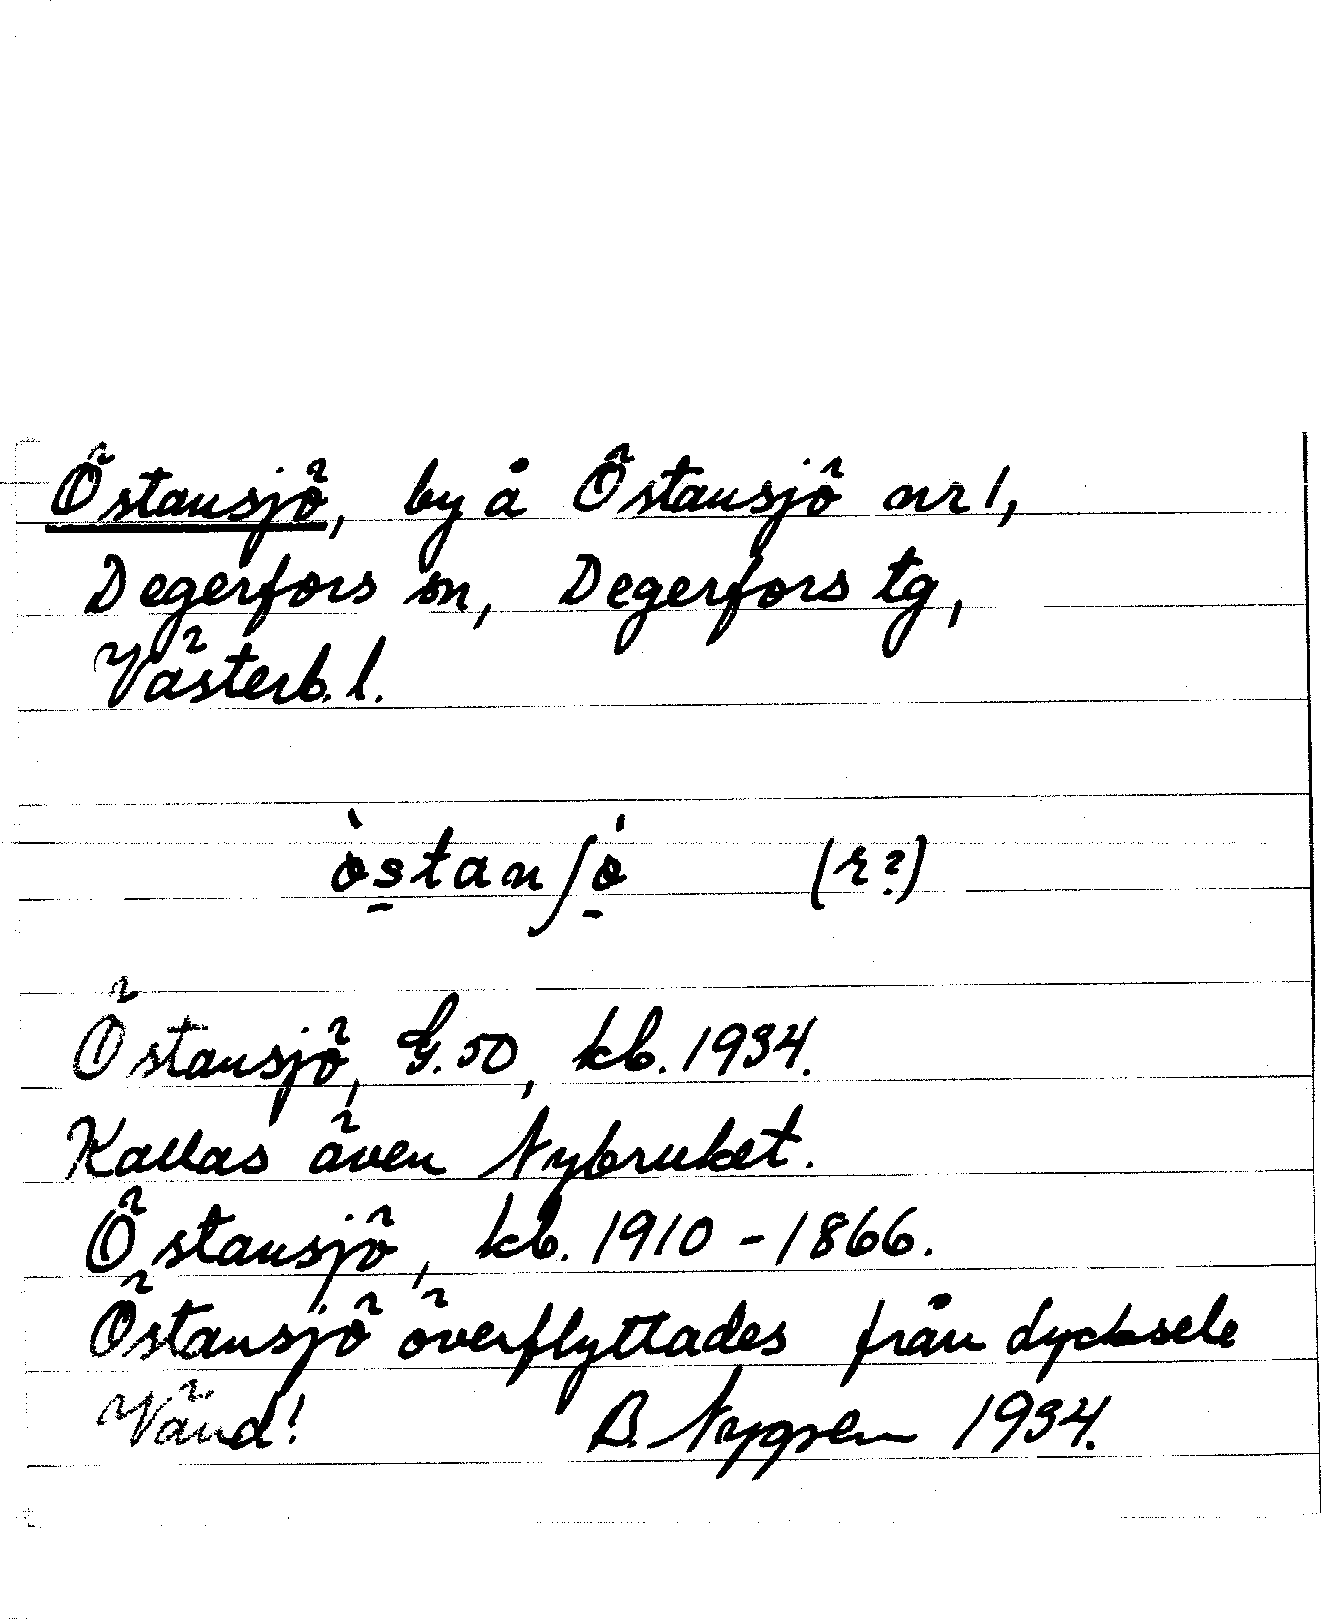 Östansjö, by å Östansjö nr 1,
Degerfors sn, Degerfors tg,
Västerb. l.
östanʃö (r?)
Östansjö, G.50, kb. 1934.
Kallas även Nybruket.
Östansjö, kb. 1910 - 1866.
Östansjö överflyttades från Lycksele
Vänd! B. Nygren 1934.